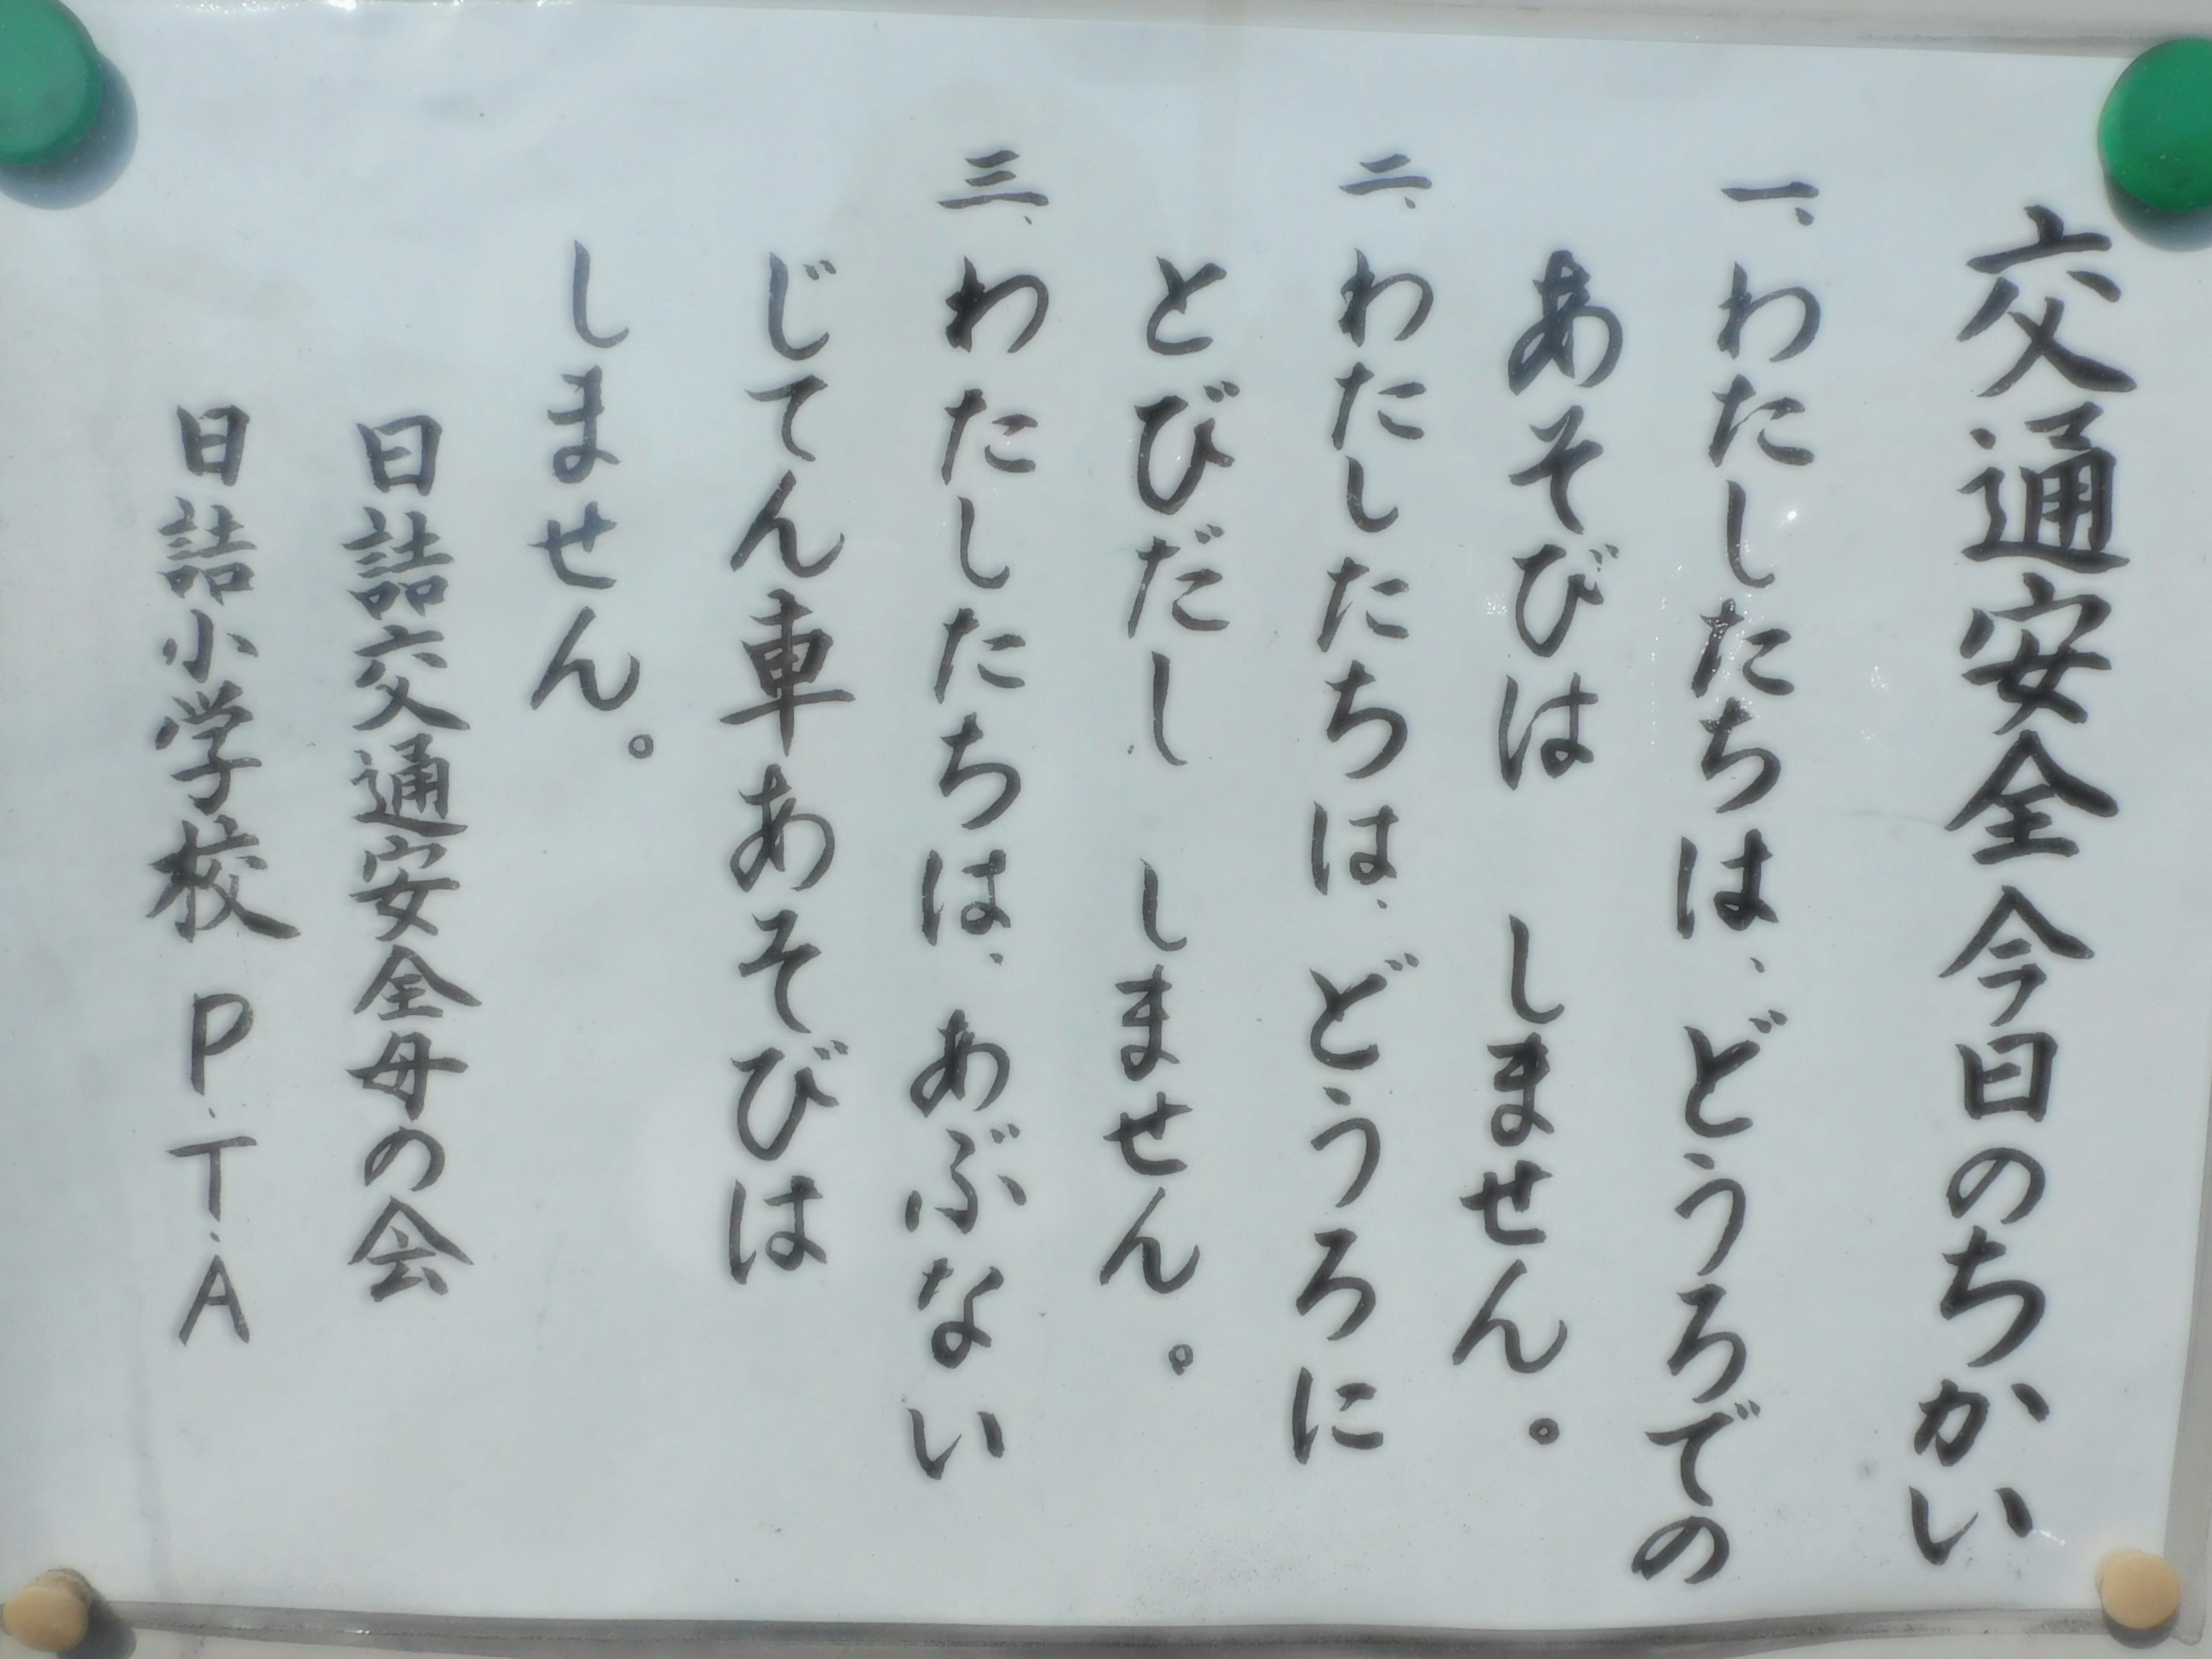 交通安全今日のちかい
一、わたしたちは、どうろでの
あそびは しません。
二、わたしたちは、どうろに
とびだし しません。
三、わたしたちは、あぶない
じてん車あそびは
しません。
日詰交通安全母の会
日詰小学校 P.T.A